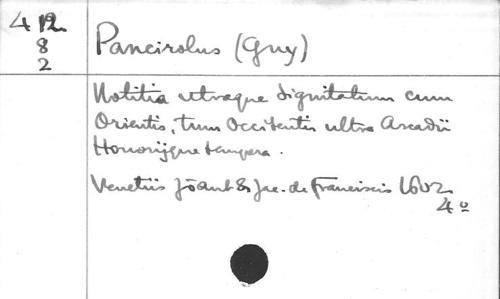 4 12
8
2
Pancirolus (Guy)
Notitia utraque dignitatum cum
Orientis, tum Occidentis ultra Arcadii
Honorijque tempora.
Venetiis Joant & Jac. de Franciscis 1602
4º